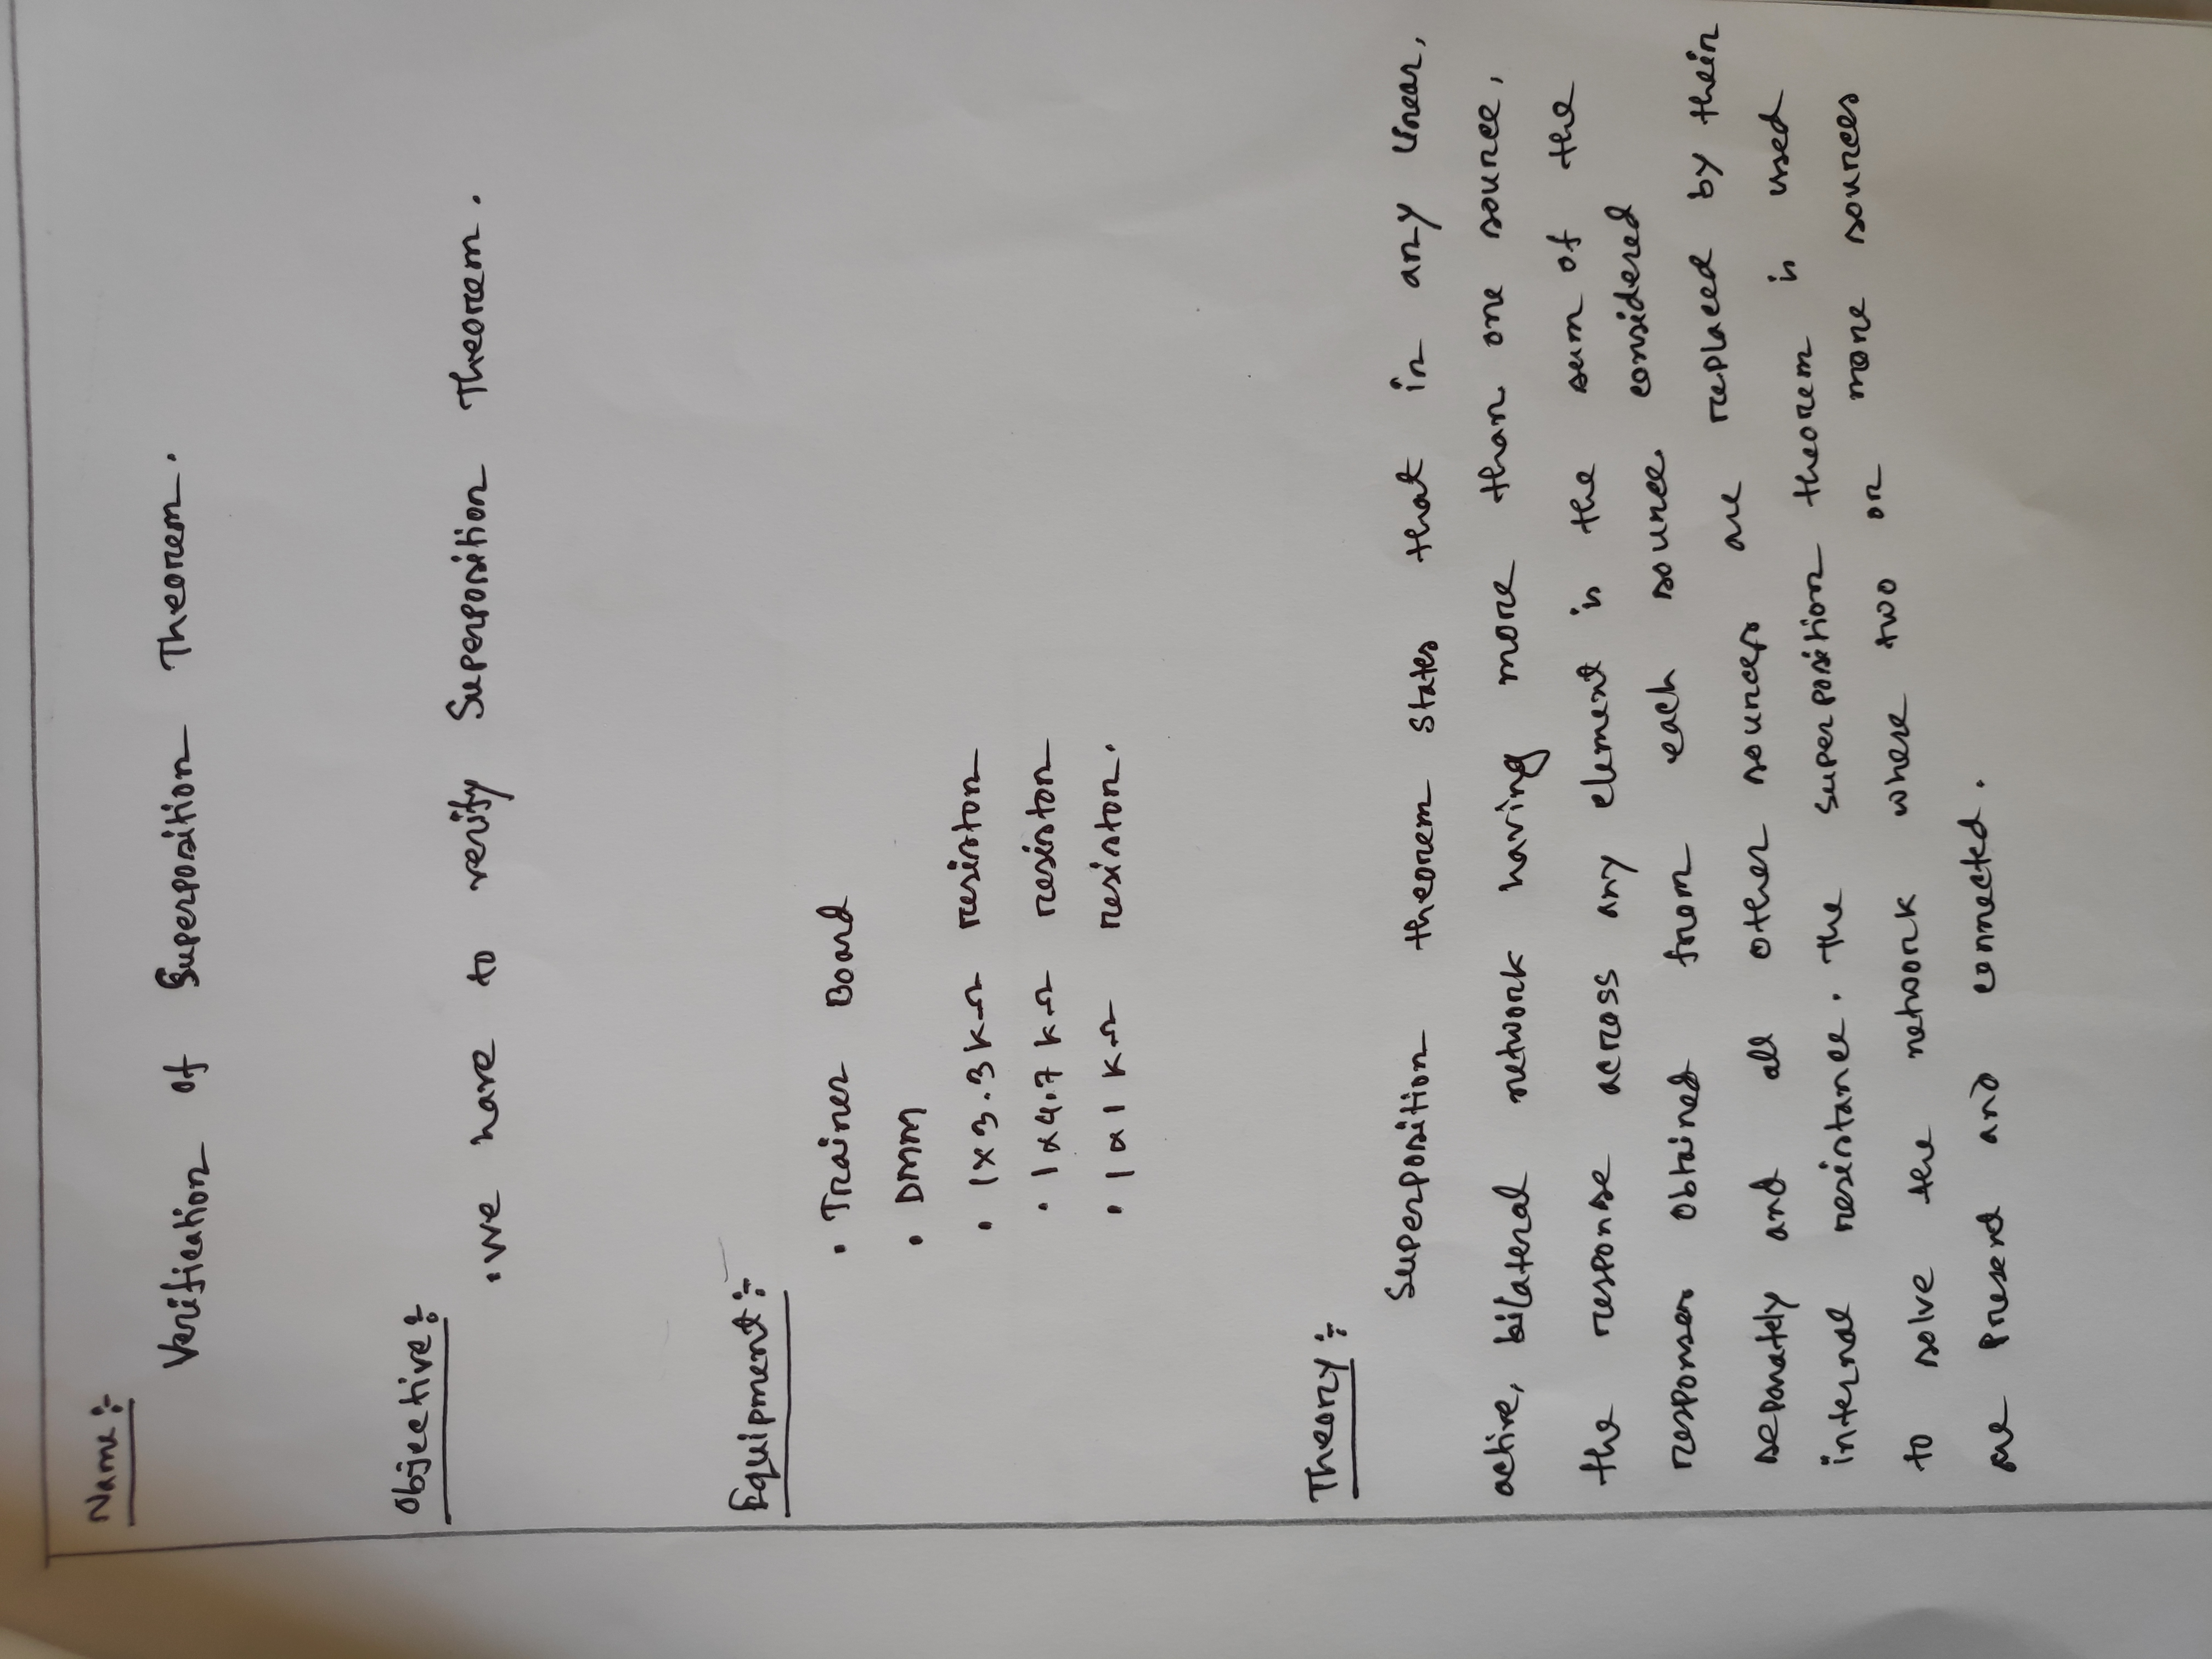 Name :-
Verification of Superposition Theorem.
Objective :
• We have to verify Superposition Theorem.
Equipment :-
• Trainer Board
• DMM
• 1x3.3 kΩ resistor
• 1x4.7 kΩ resistor
• 1x1 kΩ resistor.
Theory :-
Superposition theorem states that in any linear,
active, bilateral network having more than one source,
the response across any element is the sum of the
responses obtained from each source considered
separately and all other sources are replaced by their
internal resistance. The superposition theorem is used
to solve the network where two or more sources
are present and connected.